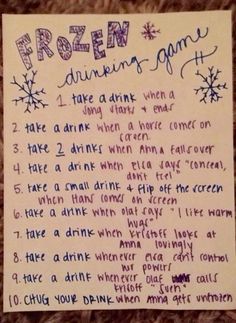 FROZEN
drinking game
1. take a drink when a
song starts & ends
2. take a drink when a horse comes on
screen.
3. take 2 drinks when Anna falls over
4. take a drink when elsa says "conceal,
don't feel"
5. take a small drink & flip off the screen
when Hans comes on screen
6. take a drink when olaf says "I like warm
hugs"
7. take a drink when kristoff looks at
Anna lovingly
8. take a drink whenever elsa can't control
her powers
9. take a drink whenever Olaf calls
kristoff "sven"
10. CHUG YOUR DRINK when Anna gets unfrozen